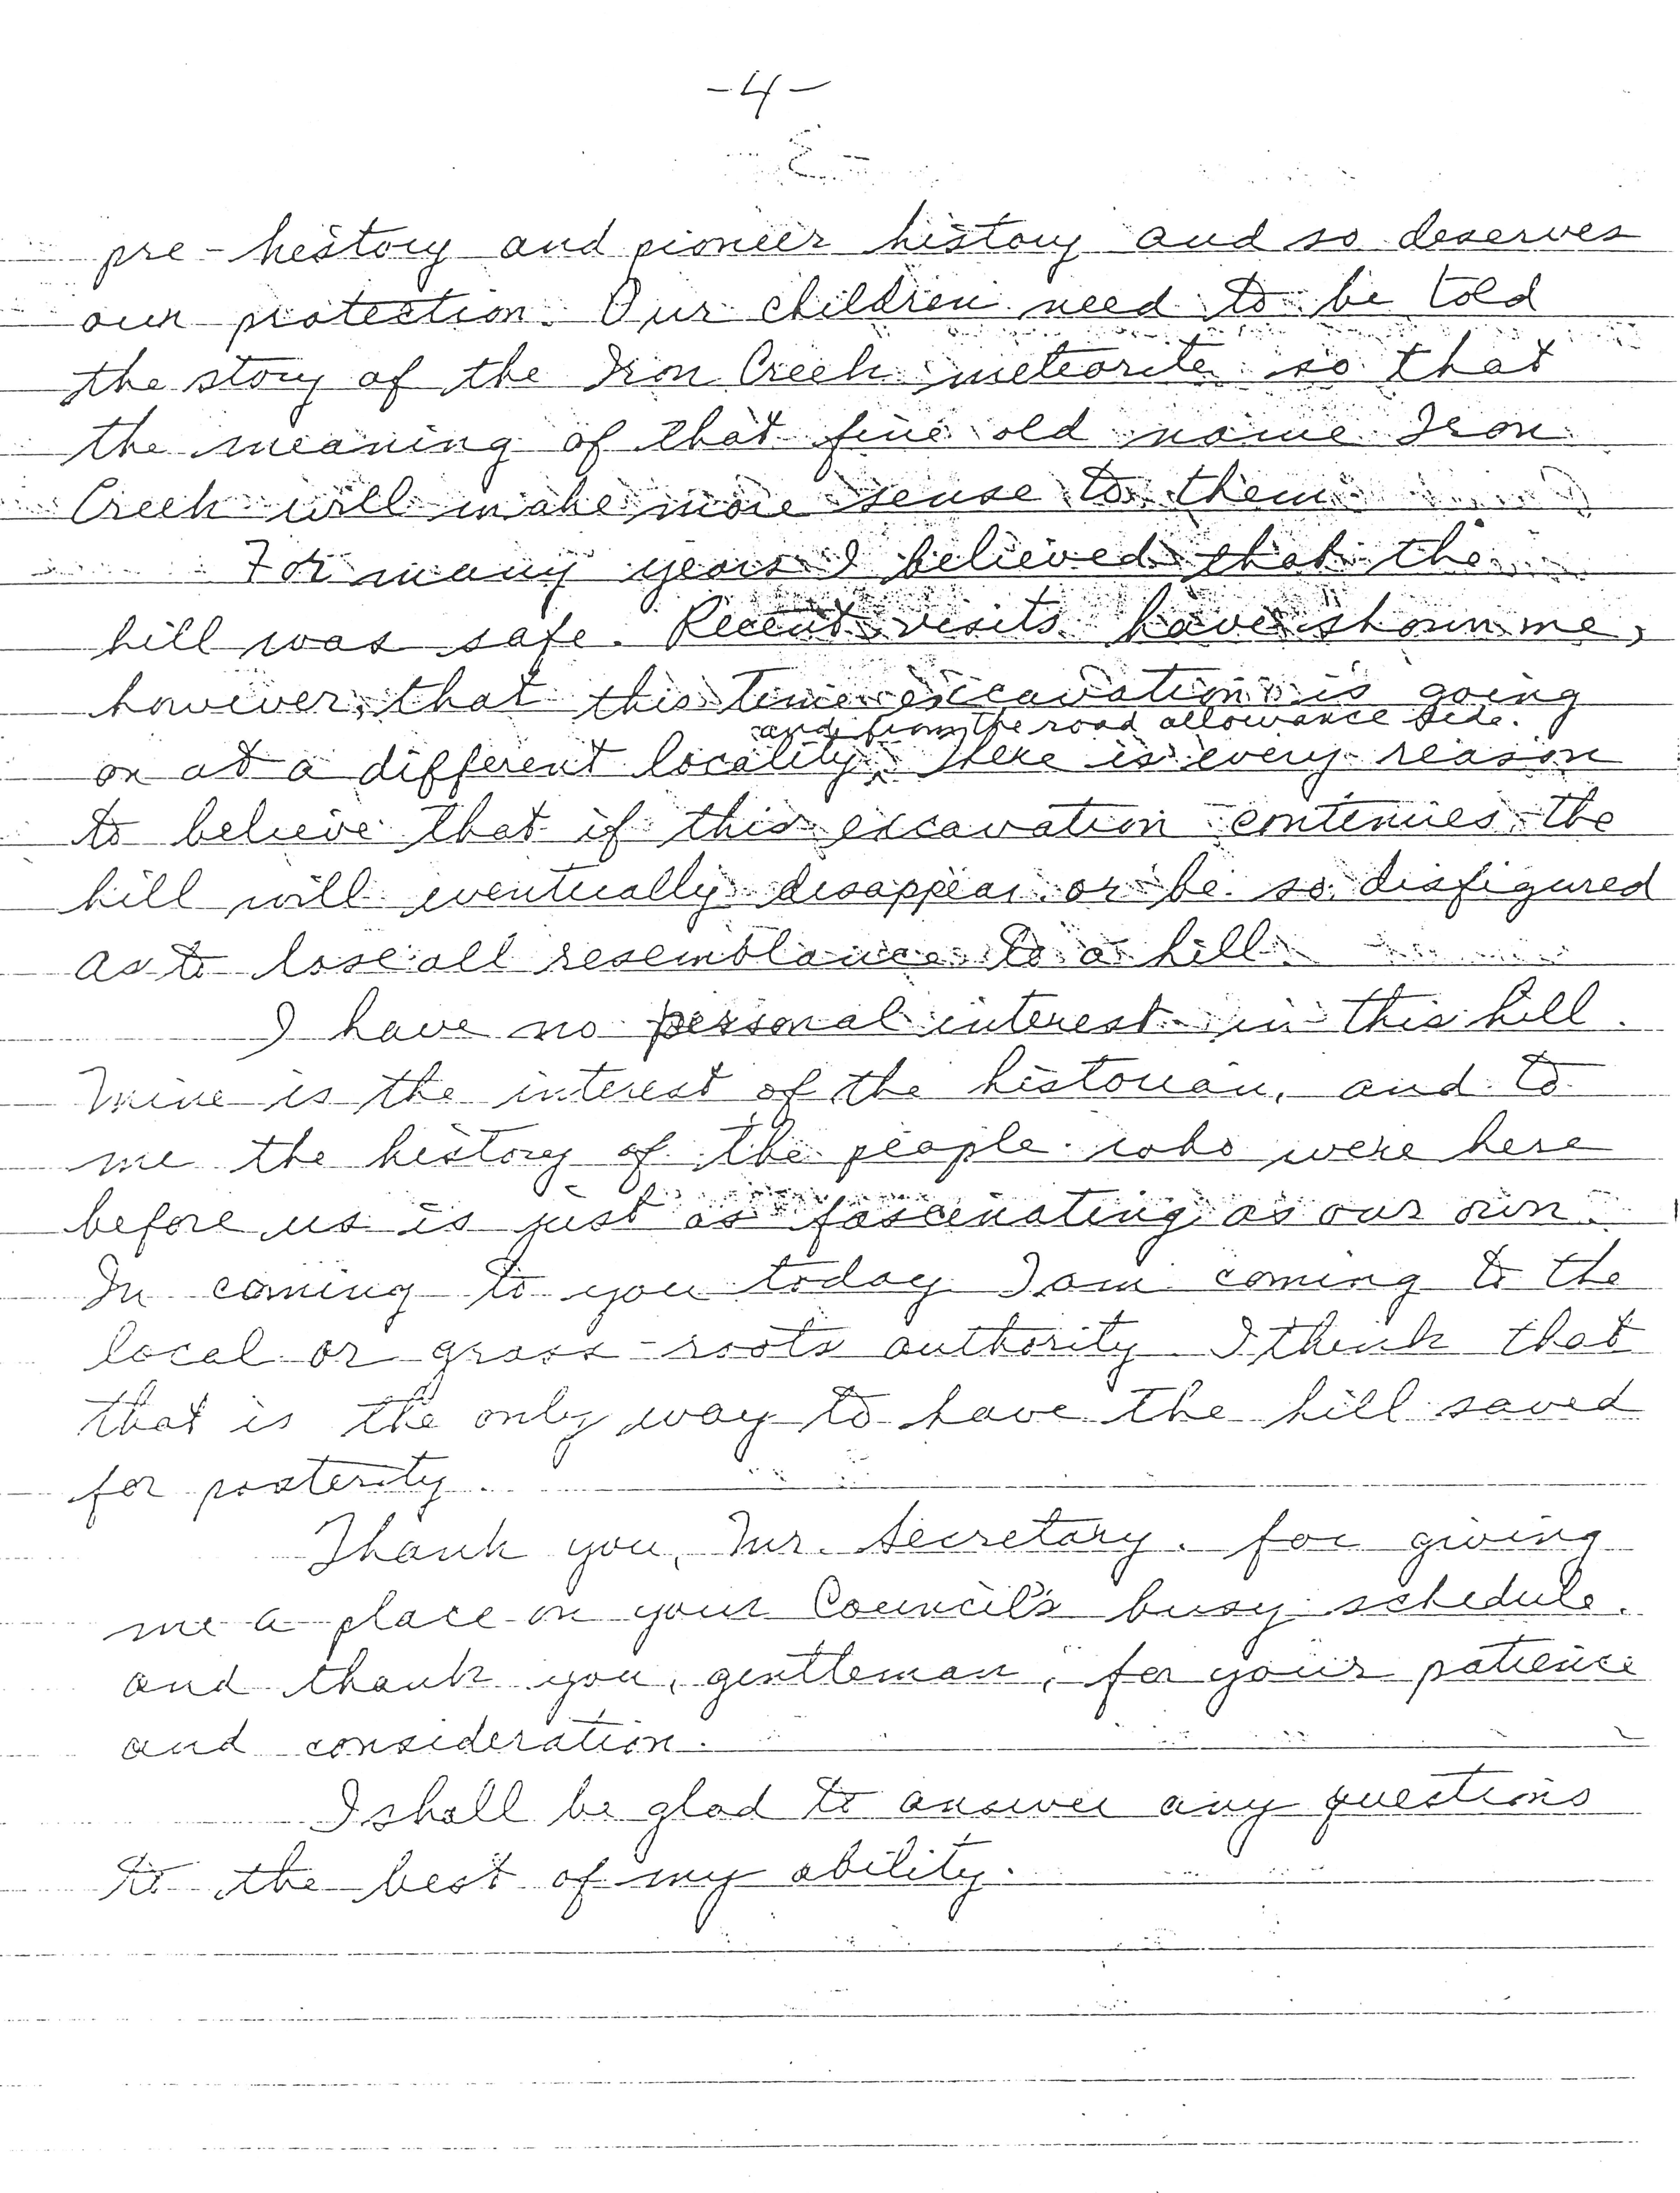 -4-
pre-history and pioneer history and so deserves
our protection. Our children need to be told
the story of the Iron Creek meteorite so that
the meaning of that fine old name Iron
Creek will make more sense to them.
For many years I believed that the
hill was safe. Recent visits have shown me,
however, that this time excavation is going
and from the road allowance side.
on at a different locality. There is every reason
to believe that if this excavation continues the
hill will eventually disappear or be so disfigured
as to lose all resemblance to a hill.
I have no personal interest in this hill.
Mine is the interest of the historian, and to
me the history of the people who were here
before us is just as fascinating as our own.
In coming to you today I am coming to the
local or grass-roots authority. I think that
that is the only way to have the hill saved
for posterity.
Thank you, Mr. Secretary, for giving
me a place on your Council's busy schedule.
and thank you, gentleman, for your patience
and consideration.
I shall be glad to answer any questions
to the best of my ability.